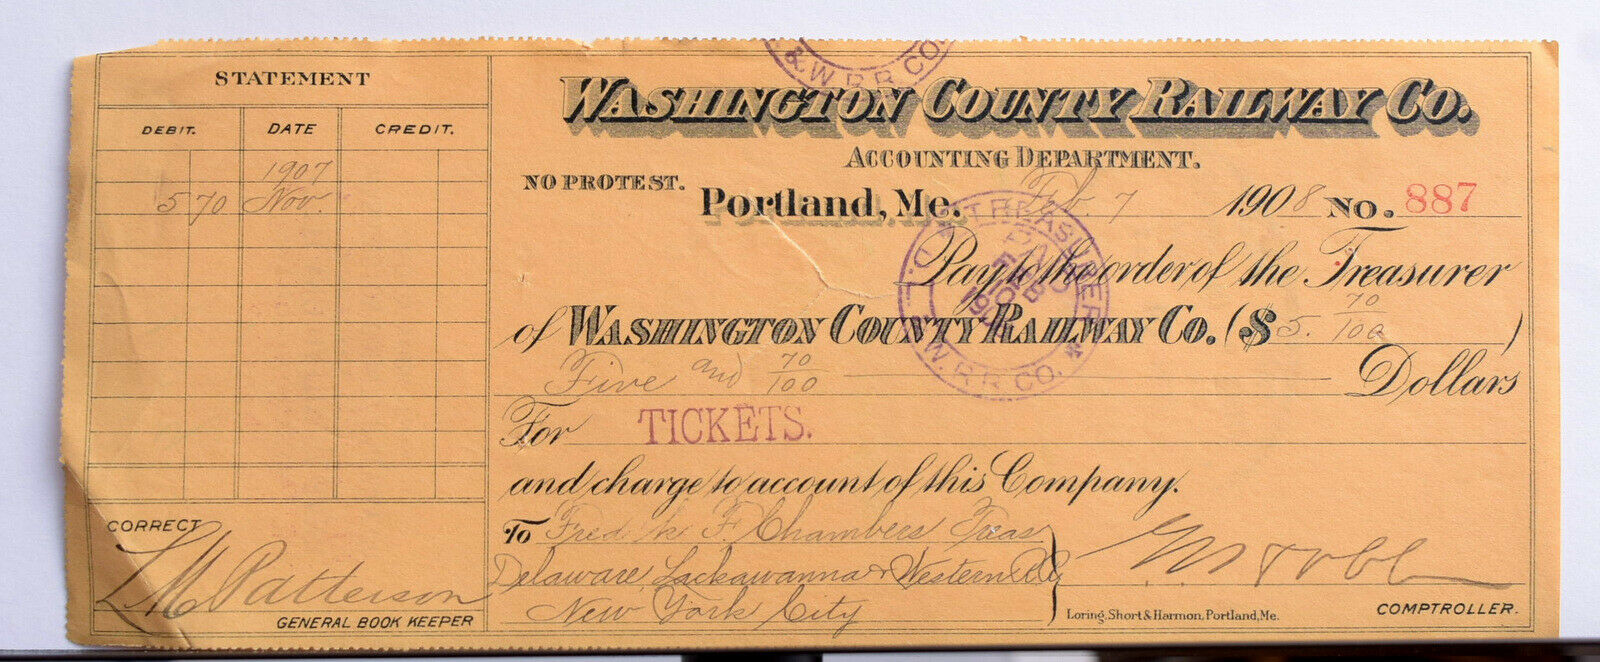 & W. R R CO.
STATEMENT
DEBIT. DATE CREDIT.
1907
5 70 Nov.
CORRECT
L M Patterson
GENERAL BOOK KEEPER
WASHINGTON COUNTY RAILWAY CO.
ACCOUNTING DEPARTMENT.
NO PROTEST. Portland, Me. Feb. 7 1908 NO. 887
Pay to the order of the Treasurer
of WASHINGTON COUNTY RAILWAY CO. ($ 5. 70/100 )
Five and 70/100 Dollars
For TICKETS.
and charge to account of this Company.
To Fred'k F. Chambers Treas
Delaware, Lackawanna & Western Ry
New York City
Loring, Short & Harmon, Portland, Me.
COMPTROLLER.
TREASURER D. L. & W. R R CO.
PAID
FEB